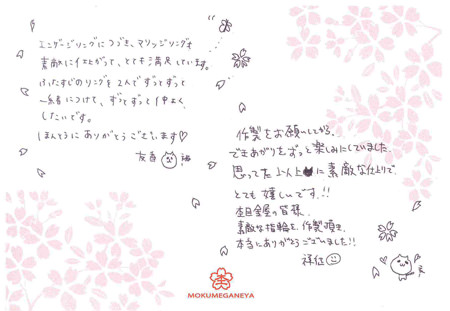 エンゲージリングにつづき、マリッジリングも
素敵に仕上がって、とても満足しています。
ふたすじのリングを2人でずっとずっと
一緒につけて、ずっとずっと仲よく
したいです。
ほんとうにありがとうございます♡
友香
作製をお願いしてから、
できあがりをずっと楽しみにしていました。
思ってた以上に素敵な仕上りで、
とても嬉しいです!!
杢目金屋の皆様、
素敵な指輪を作製頂き、
本当にありがとうございました!!
MOKUMEGANEYA